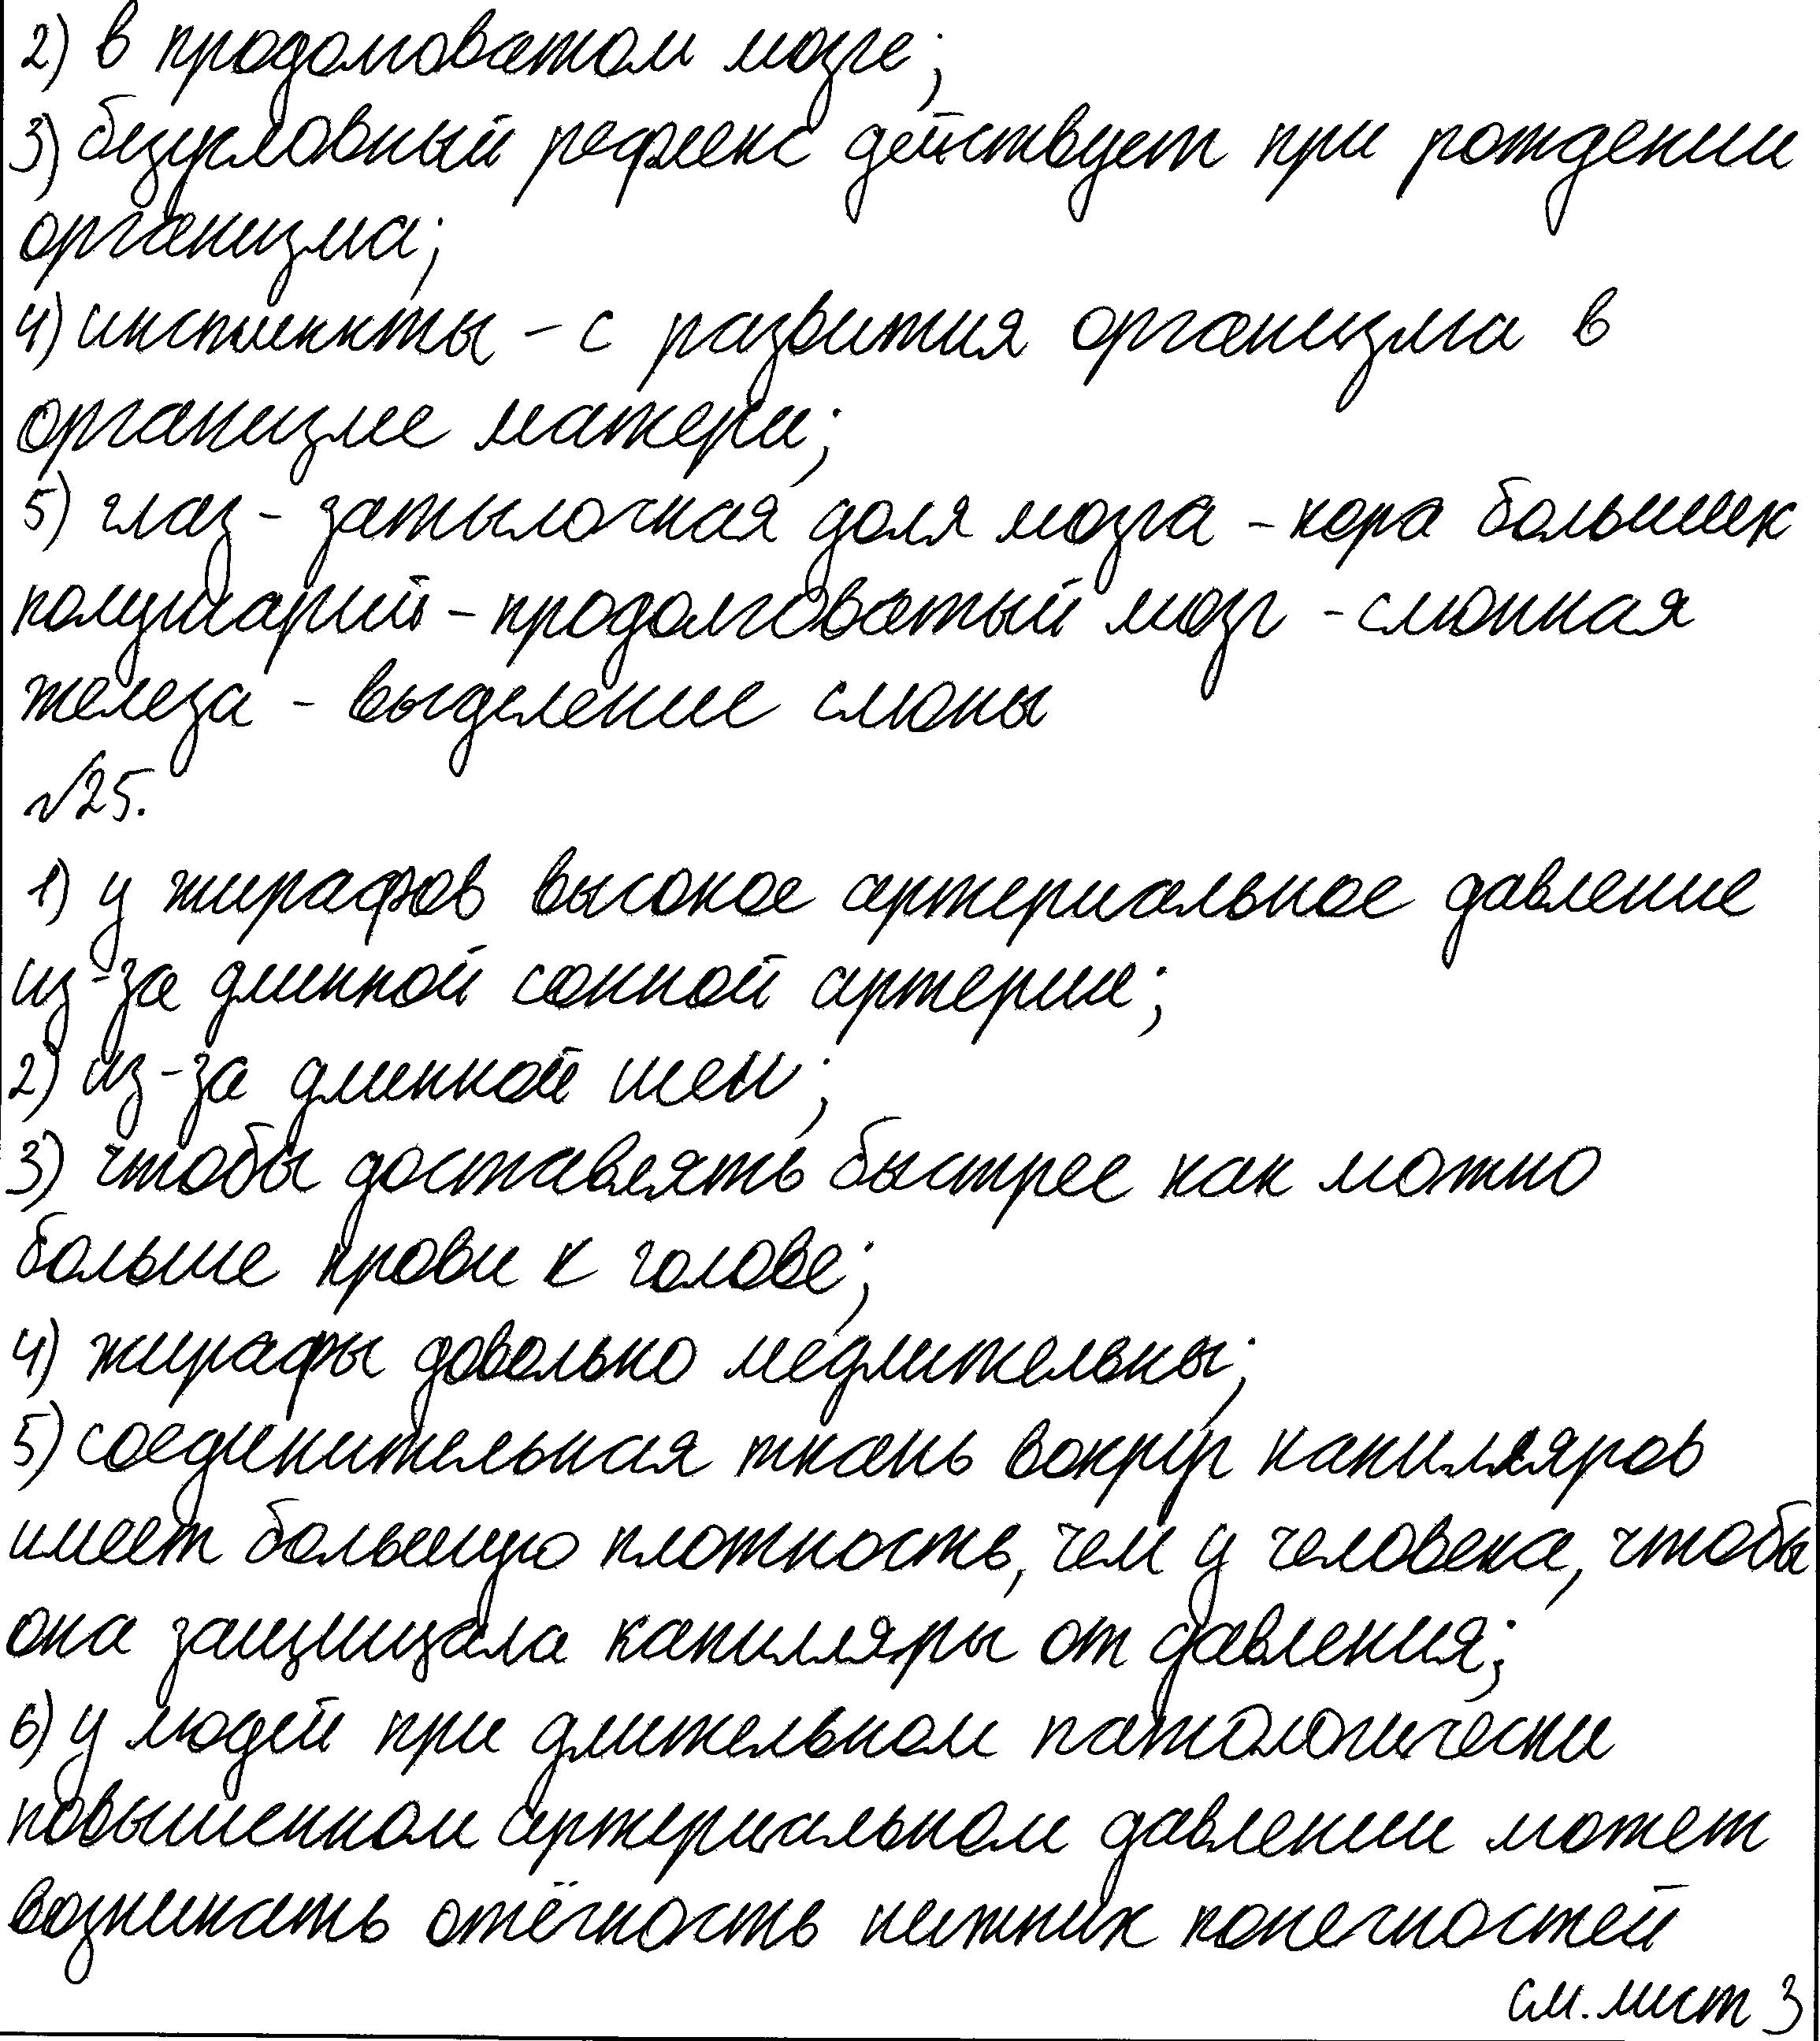 2) в продолговатом мозге;
3) безусловный рефлекс действует при рождении
организма;
4) инстинкты – с развития организма в
организме матери;
5) глаз – затылочная доля мозга – кора больших
полушарий – продолговатый мозг – слюнная
железа – выделение слюны
№25.
1) у жирафов высокое артериальное давление
из-за длинной сонной артерии;
2) из-за длинной шеи;
3) чтобы доставлять быстрее как можно
больше крови к голове;
4) жирафы довольно медлительны;
5) соединительная ткань вокруг капилляров
имеет большую плотность, чем у человека, чтобы
она защищала капилляры от давления;
6) у людей при длительном патологически
повышенном артериальном давлении может
возникать отёчность нижних конечностей
см. лист 3